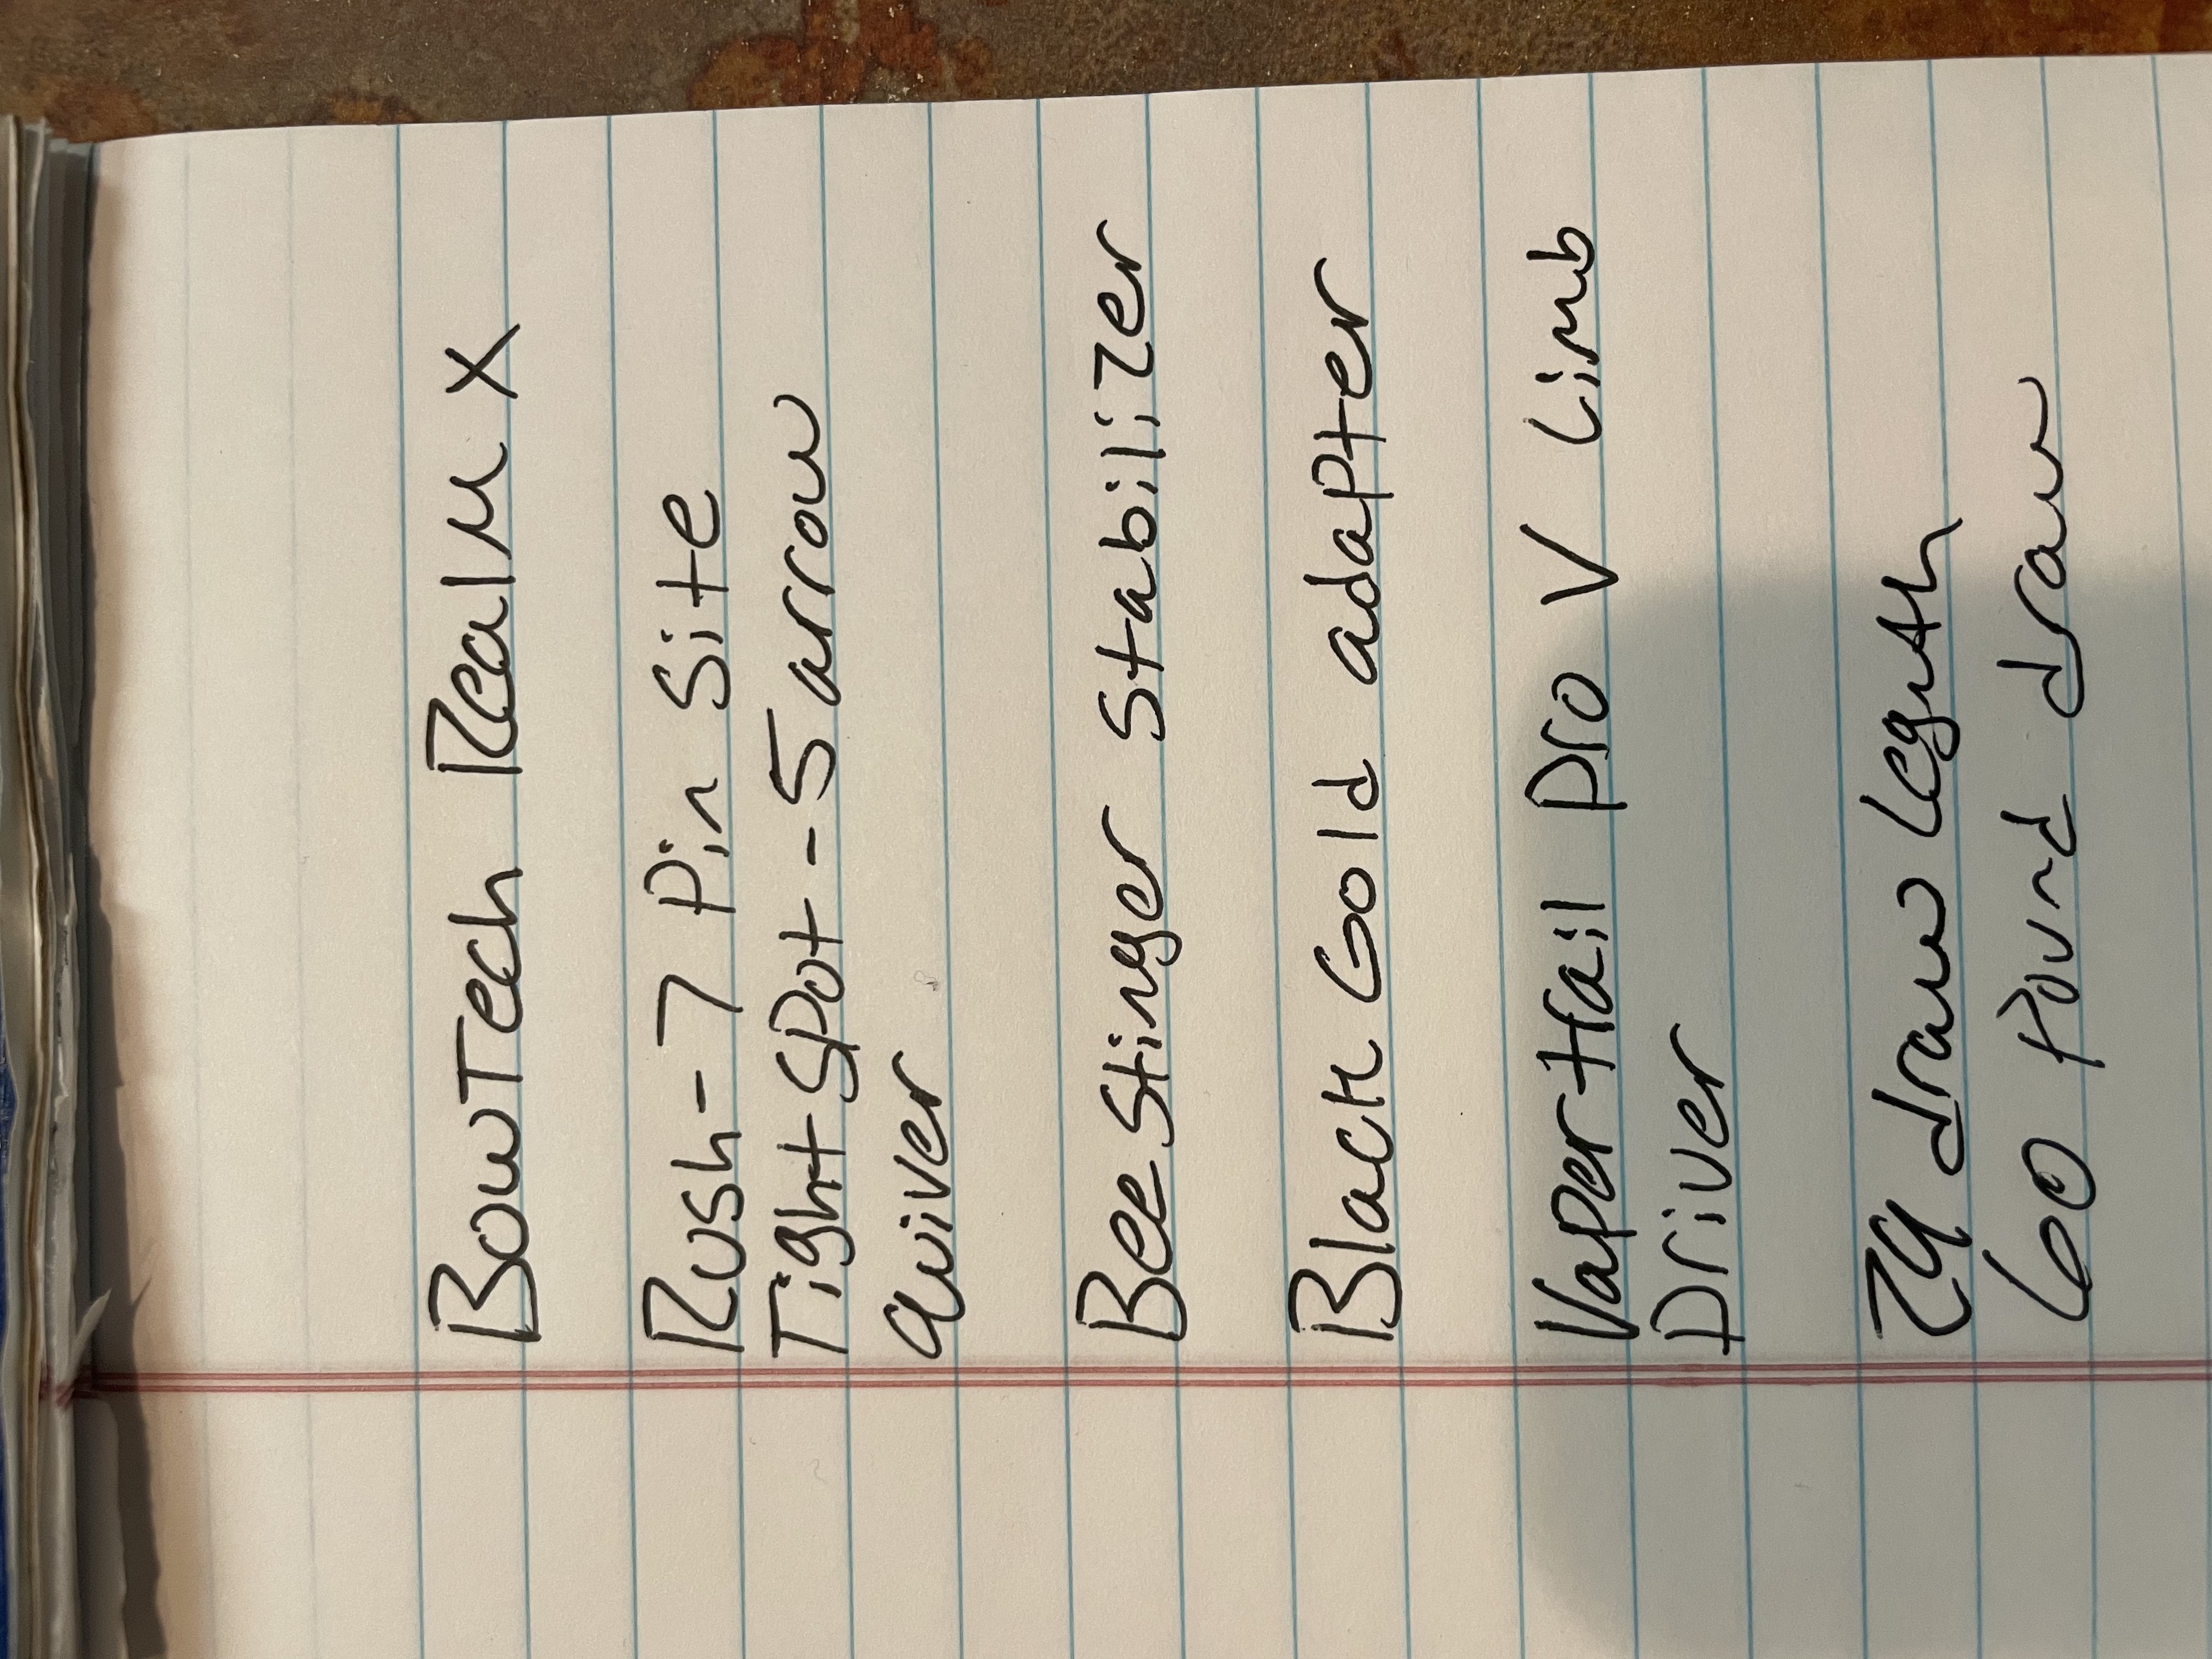 BowTech Realm X
Rush-7 Pin Site
Tight Spot - 5 arrow
Quiver
Bee Stinger Stabilizer
Black Gold adapter
Vaper trail Pro V Limb
Driver
29 draw Legnth
60 Pound draw